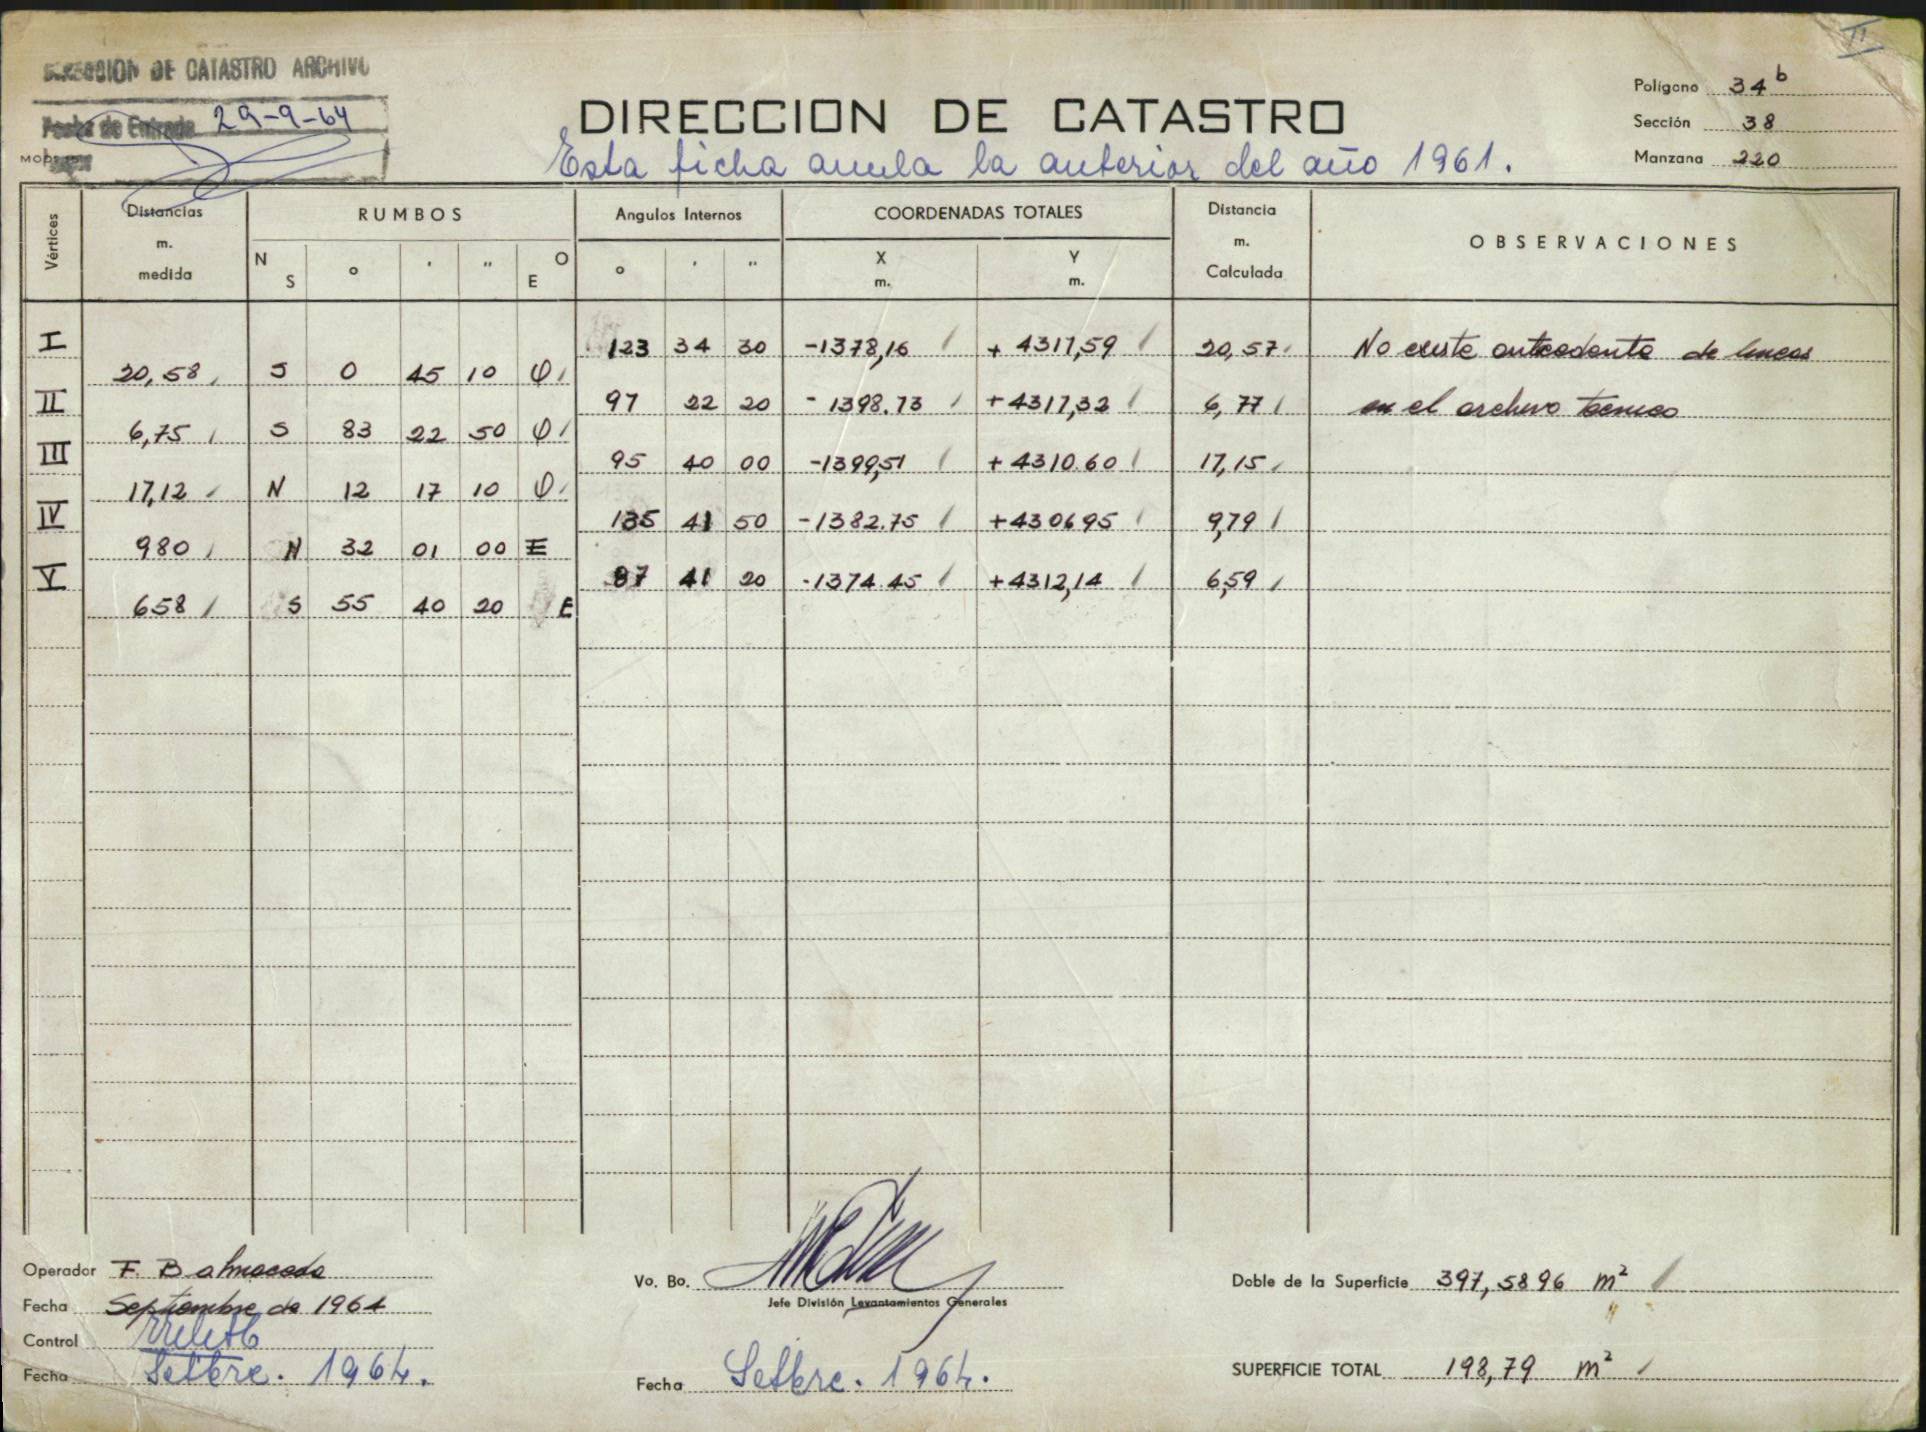 DIRECCION DE CATASTRO ARCHIVO
Fecha de Entrada 29-9-64
DIRECCION DE CATASTRO
Esta ficha anula la anterior del año 1961.
Polígono 34 b
Sección 38
Manzana 220
II
Vértices
Distancias m. medida
RUMBOS
N S ° ' '' O E
Angulos Internos
° ' ''
COORDENADAS TOTALES
X m. Y m.
Distancia m. Calculada
OBSERVACIONES
I 123 34 30 -1378,16 + 4317,59 20,57 No existe antecedente de lineas
20,58 S 0 45 10 O
II 97 22 20 - 1398.73 +4317,32 6,77 en el archivo tecnico
6,75 S 83 22 50 O
III 95 40 00 -1399,51 + 4310.60 17,15
17,12 N 12 17 10 O
IV 135 41 50 -1382.75 +430695 9,79
980 N 32 01 00 E
V 87 41 20 -1374.45 +4312,14 6,59
658 S 55 40 20 E
Operador F. Balmaceda
Fecha Septiembre de 1964
Control
Fecha Setbre. 1964.
Vo. Bo.
Jefe División Levantamientos Generales
Fecha Setbre. 1964.
Doble de la Superficie 397,5896 m²
SUPERFICIE TOTAL 198,79 m²